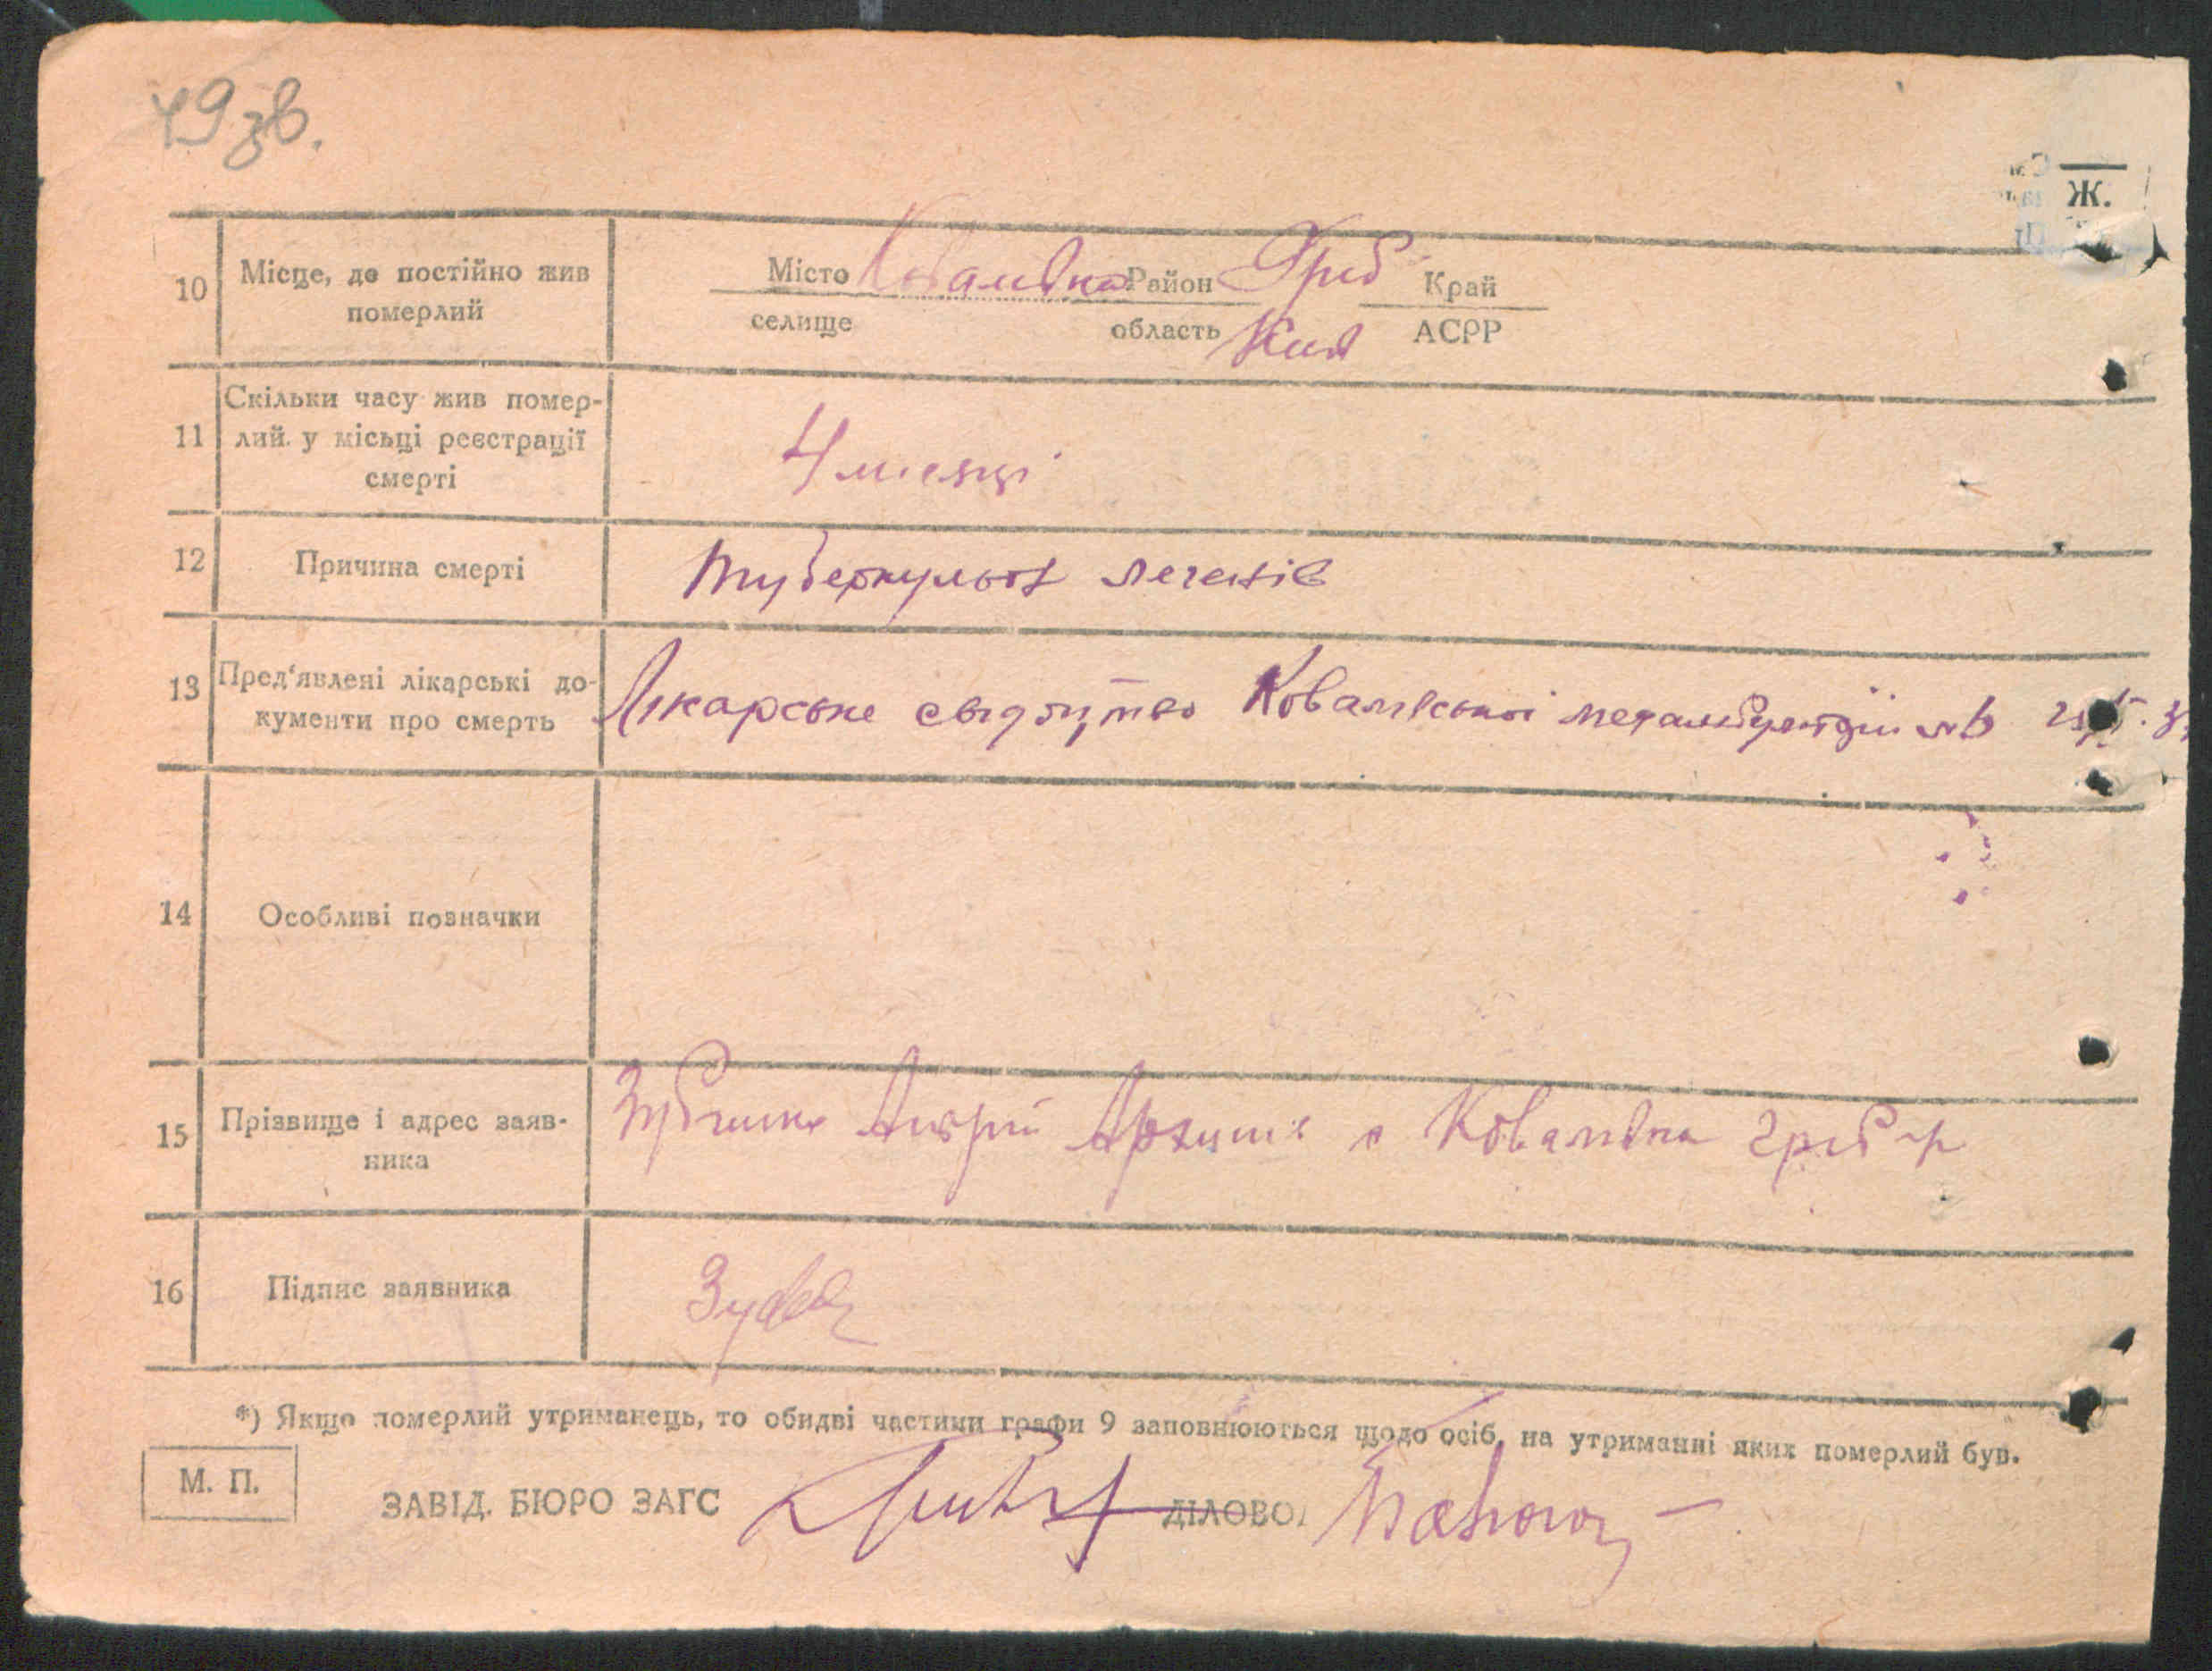 49 зв.
Ж.
10 Місце, де постійно жив померлий
Місто Ковалівка Район Гриб Край
селище область Київ АСРР
11 Скільки часу жив помер-
лий у місьці реєстрації
смерті
4 місяці
12 Причина смерті
туберкульоз легенів
13 Пред'явлені лікарські до-
кументи про смерть
Лікарське свідоцтво Ковалівської медамбулаторії
14 Особливі позначки
15 Прізвище і адрес заяв-
ника
с Ковалівка гриб р
16 Підпис заявника
*) Якщо померлий утриманець, то обидві частини графи 9 заповнюються щодо осіб, на утриманні яких померлий був.
М. П.
ЗАВІД. БЮРО ЗАГС ДІЛОВОД